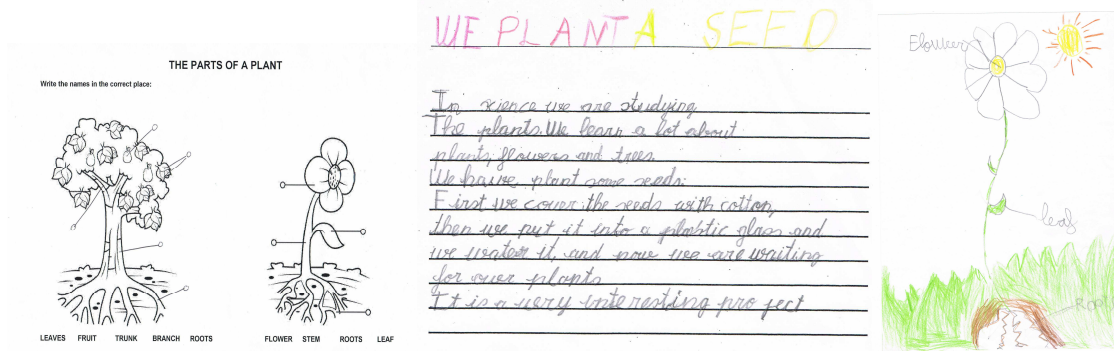 THE PARTS OF A PLANT
Write the names in the correct place:
LEAVES FRUIT TRUNK BRANCH ROOTS
FLOWER STEM ROOTS LEAF
WE PLANT A SEED
In xience we are studying
The plants. We learn a lot about
plants, flowers and trees.
We haive plant some seeds:
First we cover the seeds with cotton,
then we put it into a plastic glass and
we water it, and now we are waiting
for over plants
It is a very interesting pro ject
leaf